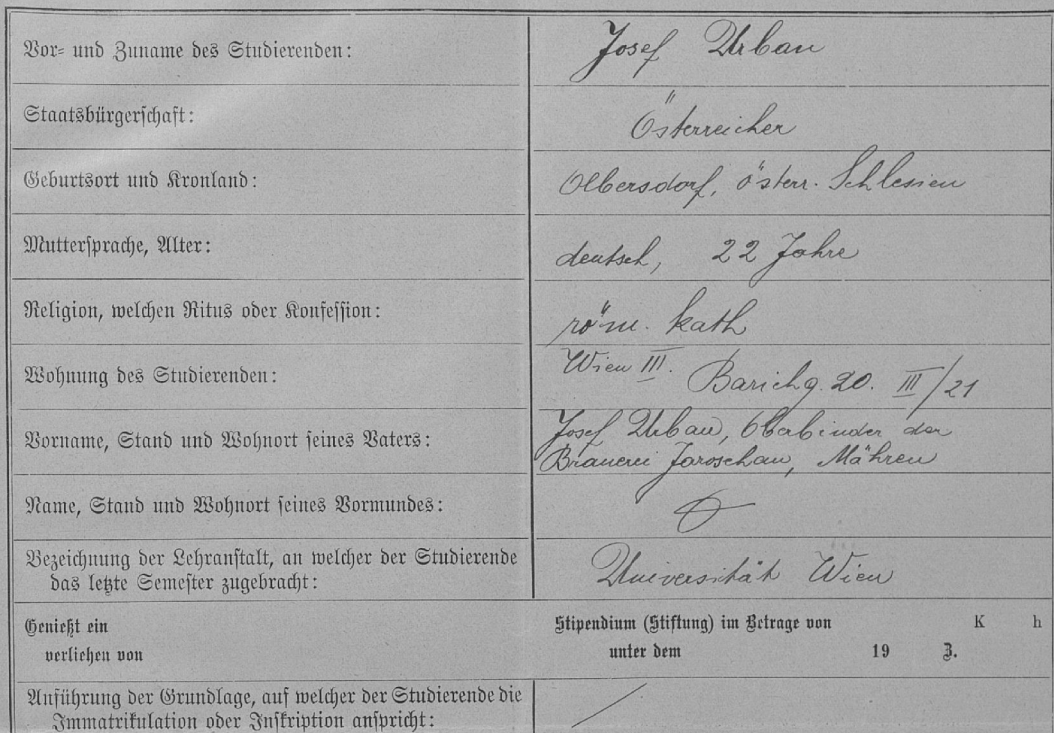 Vor- und Zuname des Studierenden: Josef Urban
Staatsbürgerschaft: Österreicher
Geburtsort und Kronland: Olbersdorf, österr. Schlesien
Muttersprache, Alter: deutsch, 22 Jahre
Religion, welchen Ritus oder Konfession: röm. kath
Wohnung des Studierenden: Wien III. Barichg. 20. III/21
Vorname, Stand und Wohnort seines Vaters: Josef Urban, Oberbinder der
Brauerei Jaroschau, Mähren
Name, Stand und Wohnort seines Vormundes:
Bezeichnung der Lehranstalt, an welcher der Studierende
das letzte Semester zugebracht: Universität Wien
Genießt ein Stipendium (Stiftung) im Betrage von K h
verliehen von unter dem 19 Z.
Anführung der Grundlage, auf welcher der Studierende die
Immatrikulation oder Inskription anspricht: